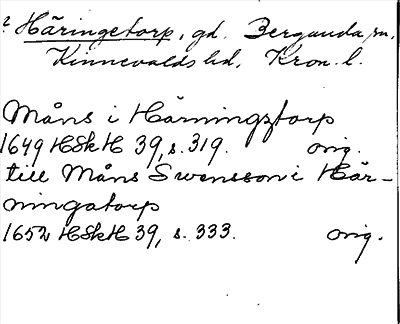 ? Häringetorp, gd. Bergunda sn,
Kinnevalds hd, Kron. l.
Måns i Härningztorp
1649 HSkH 39, s. 319. orig.
till Måns Swensson i Här-
ningatorp
1652 HSkH 39, s. 333. orig.